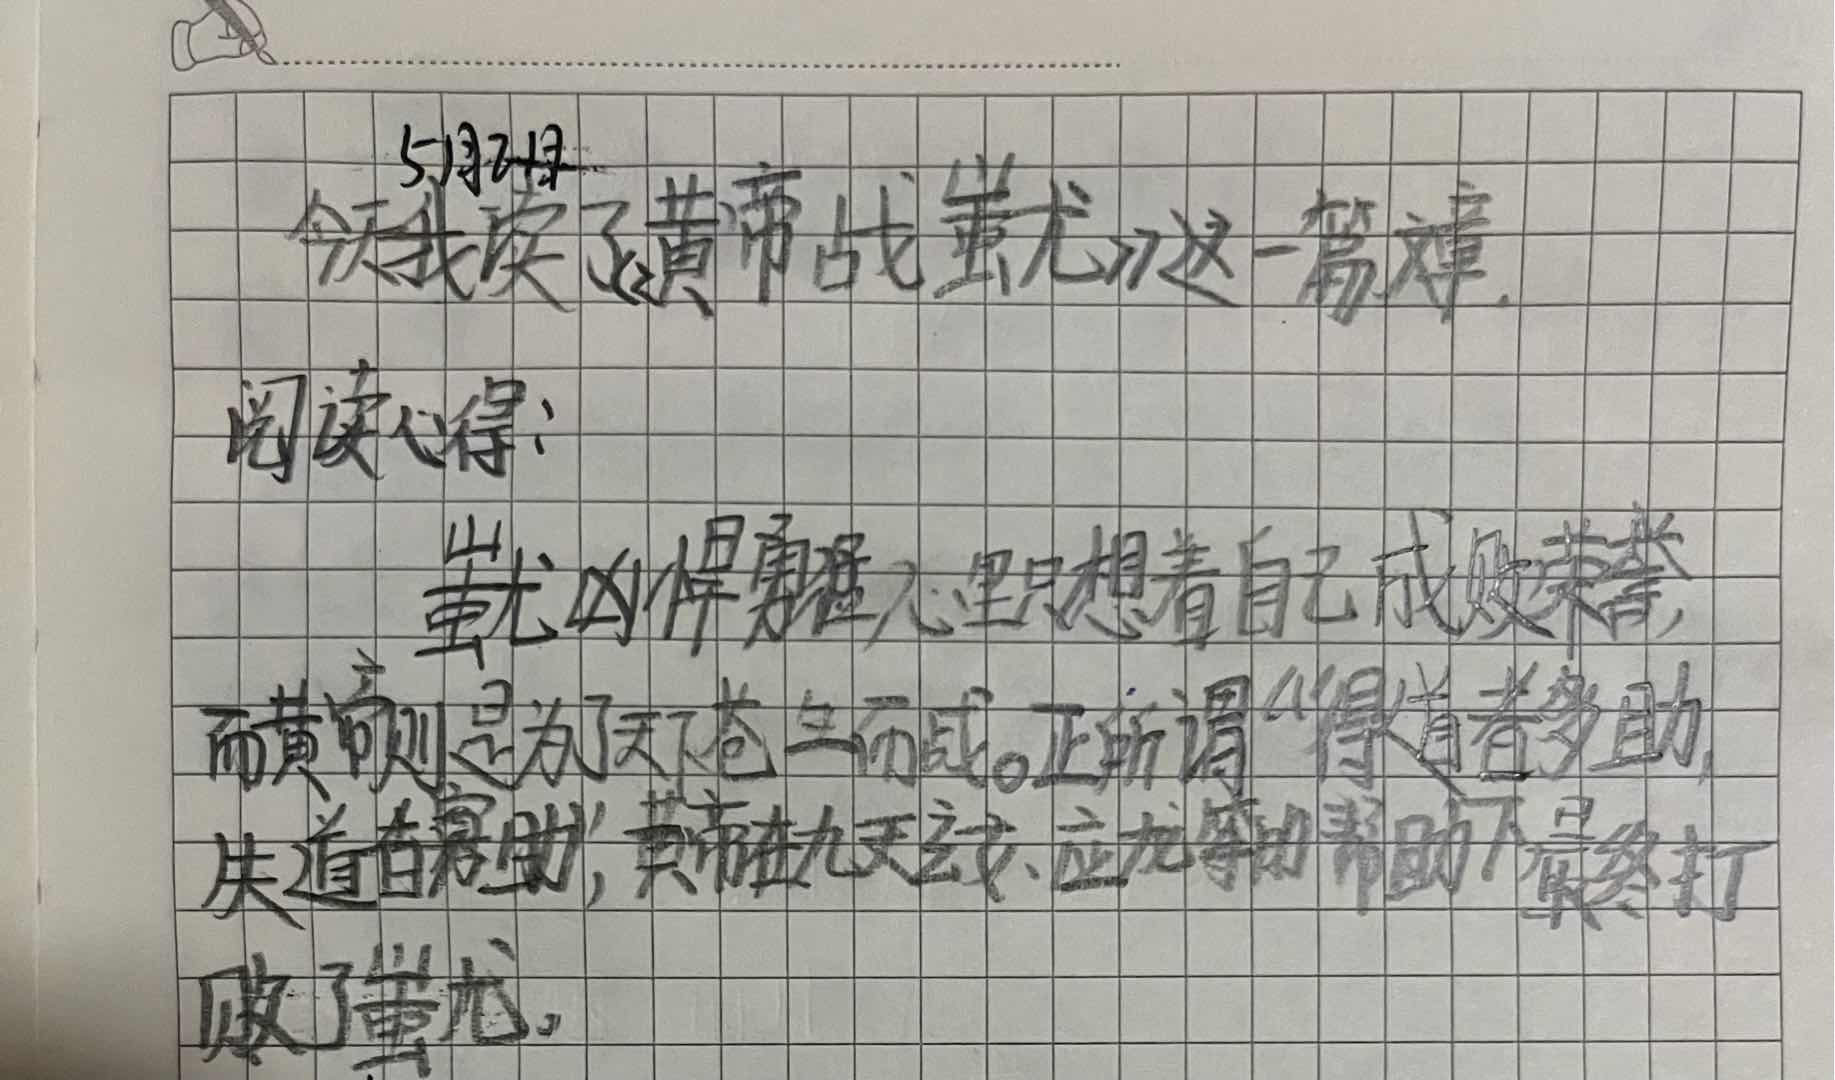 5月21日
今天我读了《黄帝战蚩尤》这一篇文章.
阅读心得:
蚩尤凶悍勇猛心里只想着自己成败荣誉,
而黄帝则是为了天下苍生而战。正所谓“得道者多助,
失道者寡助”,黄帝在九天玄女、应龙等的帮助下最终打
败了蚩尤。